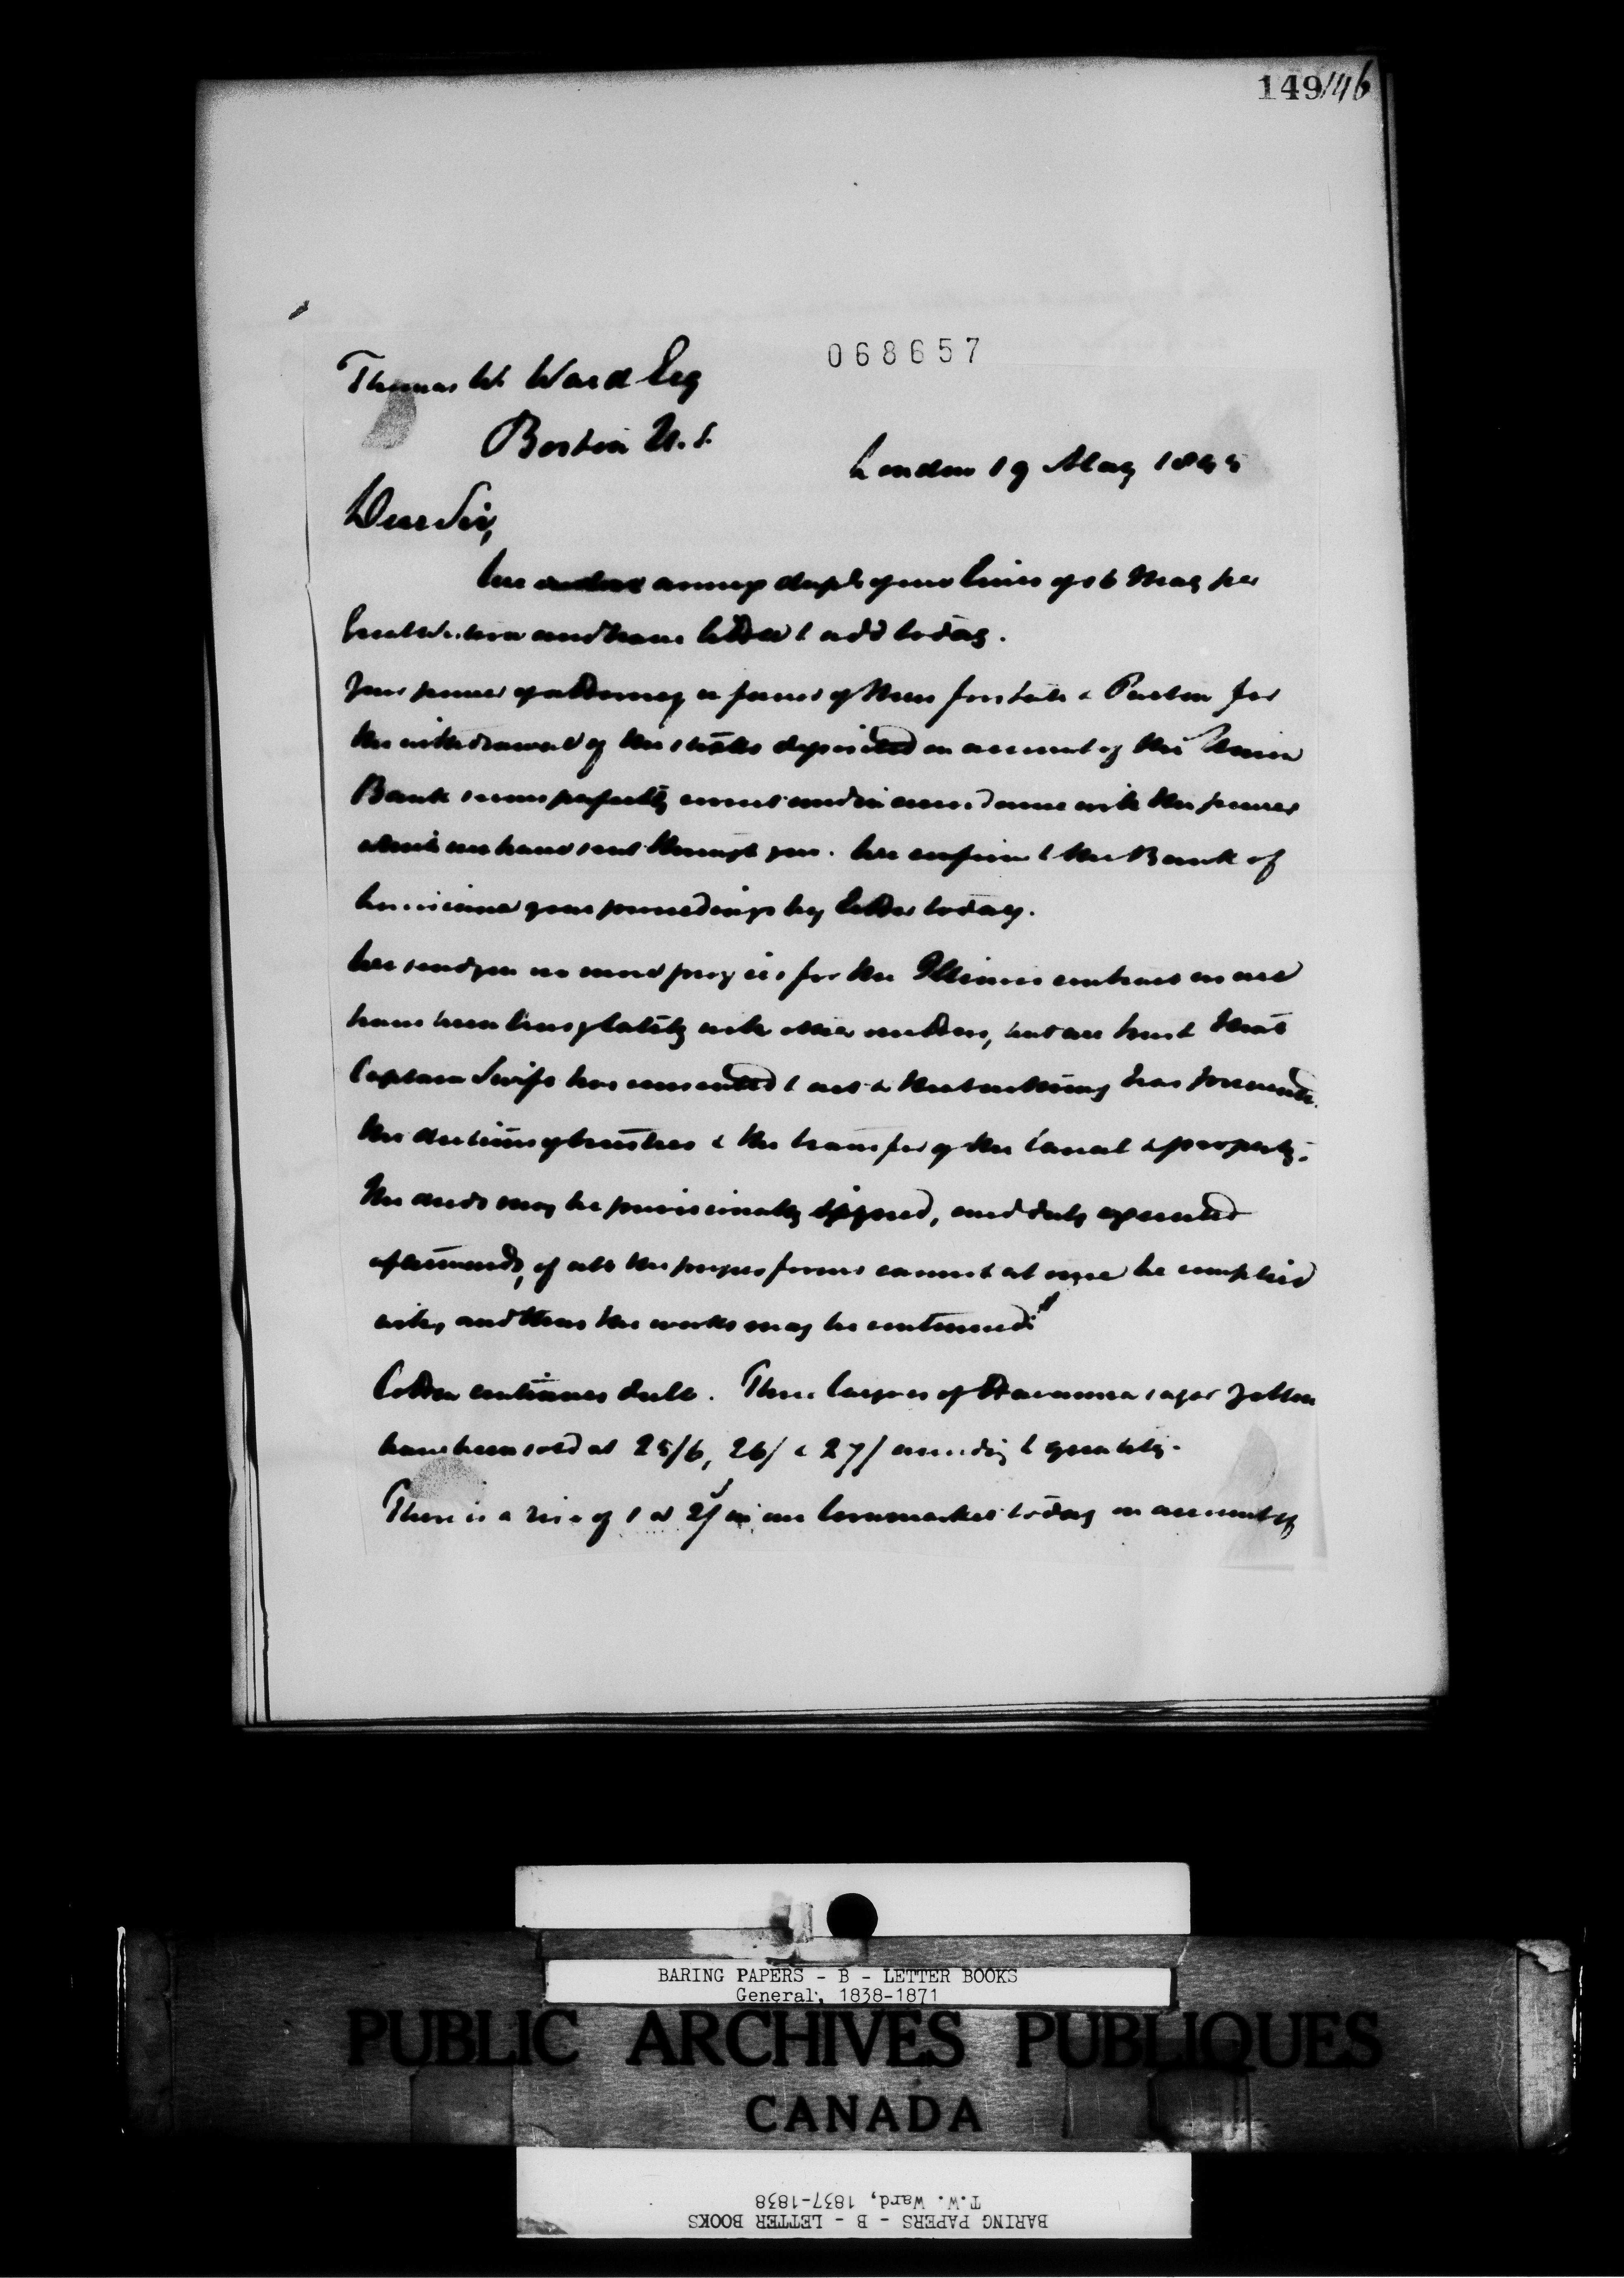 149/146
068657
Thomas W. Ward Esq
Boston U.S.
London 19 May 1845
Dear Sir,
We annex dupl of our lines of 16 May per
Great Western and have little to add today.
Your power of attorney in favor of Forstall & Paxton for
the withdrawal of the stocks deposited on account of the Union
Bank seems perfectly correct and in accordance with the powers
which we have sent through you. We confirm to the Bank of
Louisiana your proceedings by letter today.
We send you no more for the Illinois contract as we
have been busy lately with other matters, but we trust that
Captain Swift has consented to act & that nothing has prevented
the election of trustees & the transfer of the Canal & property.
The deeds may be provisionally signed, and duly executed
afterwards, if all the proper forms cannot at once be complied
with, and then the works may be continued.
Cotton continues dull. Three cargoes of Havanna sugar yellow
have been sold at 25/6, 26/ & 27/ according to quality.
There is a rise of 1 @ 2/ in our Corn market today on account of
BARING PAPERS - B - LETTER BOOKS
General, 1838-1871
PUBLIC ARCHIVES PUBLIQUES
CANADA
BARING PAPERS - B - LETTER BOOKS
T.W. Ward, 1837-1838